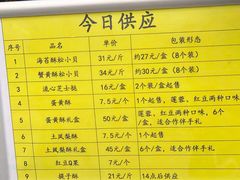 今日供应
序号 品名 单价 包装形态
1 海苔酥松小贝 31元/斤 约27元/盒（8个装）
2 蟹黄酥松小贝 34元/斤 约30元/盒（8个装）
3 流心芝士挞 16元/盒 2个/盒起售
4 蛋黄酥 7.5元/个 1个起售，莲蓉、红豆两种口味
5 蛋黄酥礼盒 50元/盒 6个/盒，莲蓉、红豆两种口味
6 土凤梨酥 7.5元/个 1个起售
7 土凤梨酥礼盒 45元/盒 6个/盒，适合作伴手礼
8 红豆Q果 7元/个
9 提子酥 21元/ 14点后供应